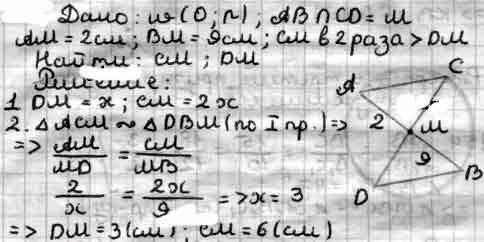 Дано: w(O;r); AB∩CD=M
AM=2см; BM=9см; CM в 2 раза > DM
Найти: CM; DM
Решение:
1 DM=x; CM=2x
2. △ACM ~ △DBM (по I пр.) =>
=> AM/MD = CM/MB
2/x = 2x/9 => x=3
=> DM=3(см); CM=6(см)
C
A
2
M
9
B
D